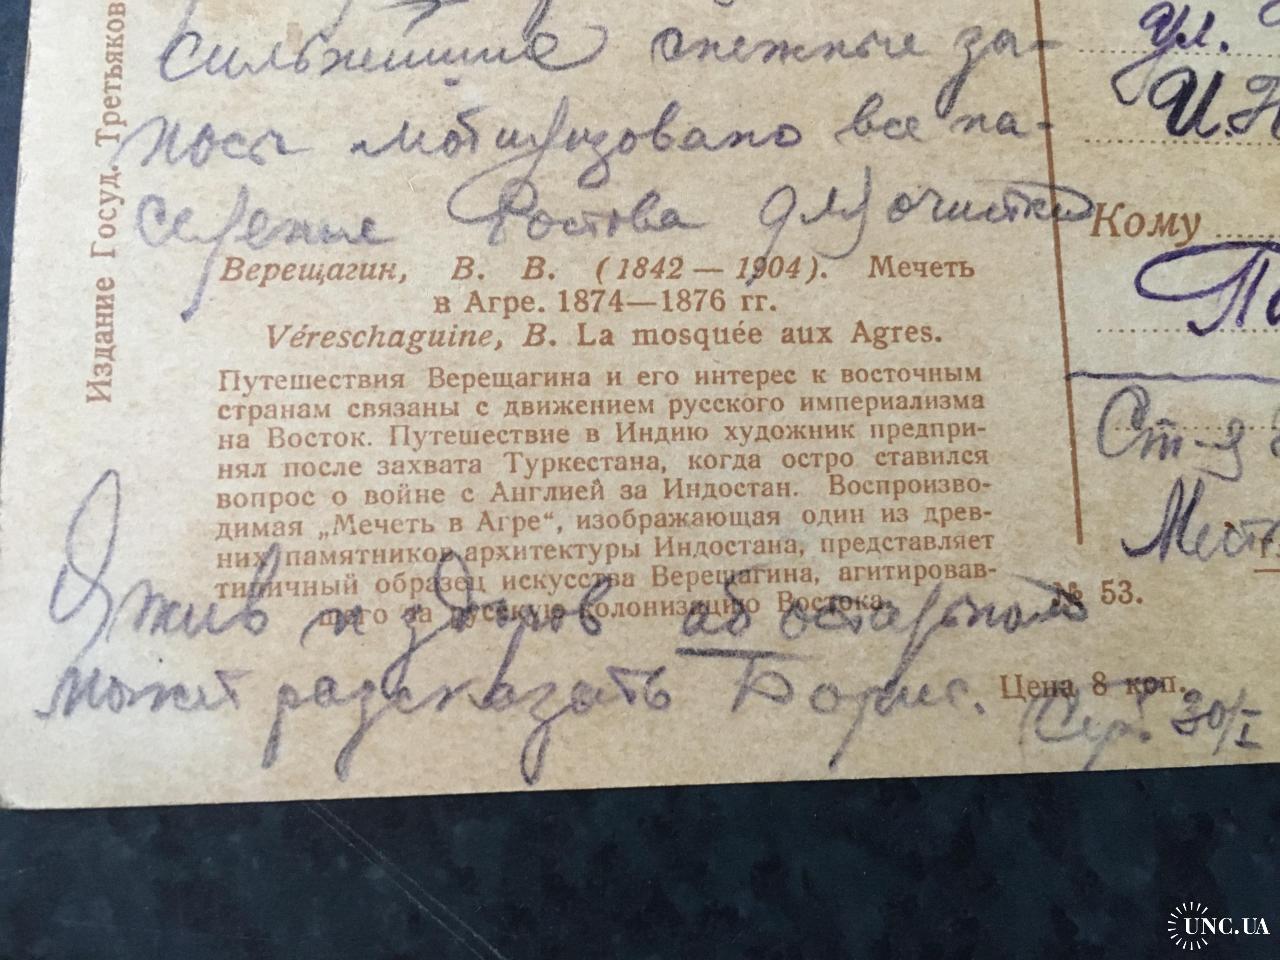 Издание Госуд. Третьяков
сильнейшие снежные за-
носы мобилизовано все на-
селение Ростова для очистки
Верещагин, В. В. (1842 — 1904). Мечеть
в Агре. 1874—1876 гг.
Véreschaguine, B. La mosquée aux Agres.
Путешествия Верещагина и его интерес к восточным
странам связаны с движением русского империализма
на Восток. Путешествие в Индию художник предпри-
нял после захвата Туркестана, когда остро ставился
вопрос о войне с Англией за Индостан. Воспроизво-
димая „Мечеть в Агре“, изображающая один из древ-
них памятников архитектуры Индостана, представляет
типичный образец искусства Верещагина, агитировав-
шего за русскую колонизацию Востока.
Я жив и здоров об остальном
может рассказать Борис.
№ 53.
Цена 8 коп.
30/I
ул.
Кому
Ст-я
UNC.UA